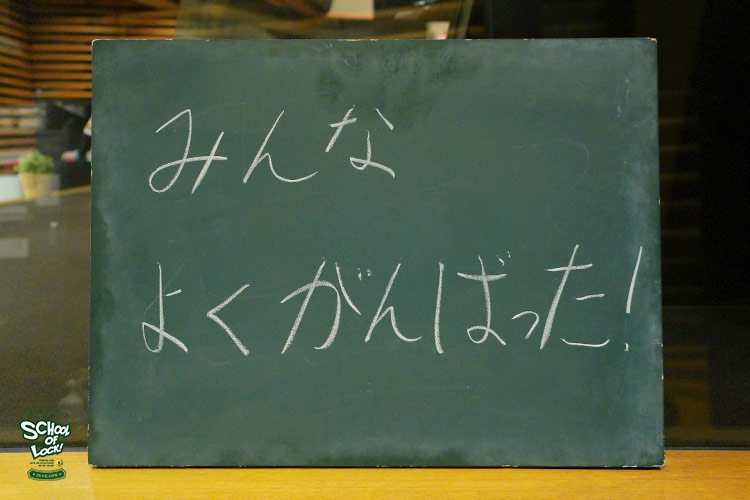 みんな
よくがんばった!
SCHOOL
OF
LOCK!